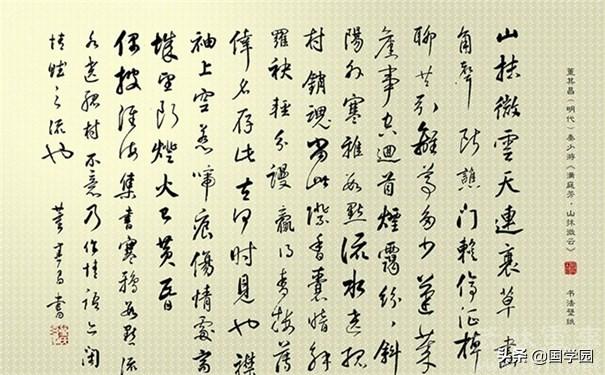 董其昌（明代）秦少游《满庭芳·山抹微云》 书法壁纸
山抹微雲天連衰草畫
角聲斷譙門暫停征棹
聊共引離尊多少蓬萊
舊事空迴首煙靄紛紛斜
陽外寒鴉數點流水遶孤
村銷魂當此際香囊暗解
羅袂輕分謾贏得青樓薄
倖名存此去何時見也襟
袖上空惹啼痕傷情處高
城望斷燈火已黃昏
偶披淮海集書寒鴉數點流
水遶孤村不意乃作情語亦閑
情賦之流也 董其昌書
头条 @国学园